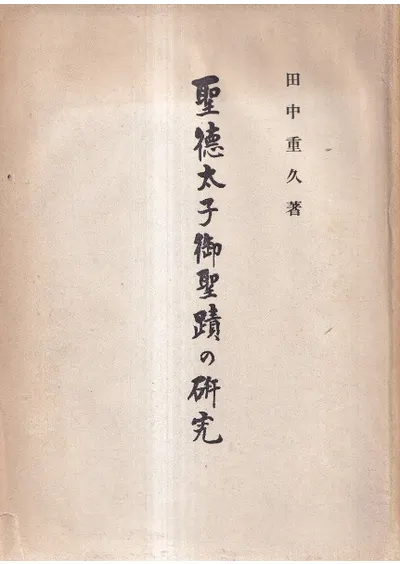 田中重久著
聖徳太子御聖蹟の研究